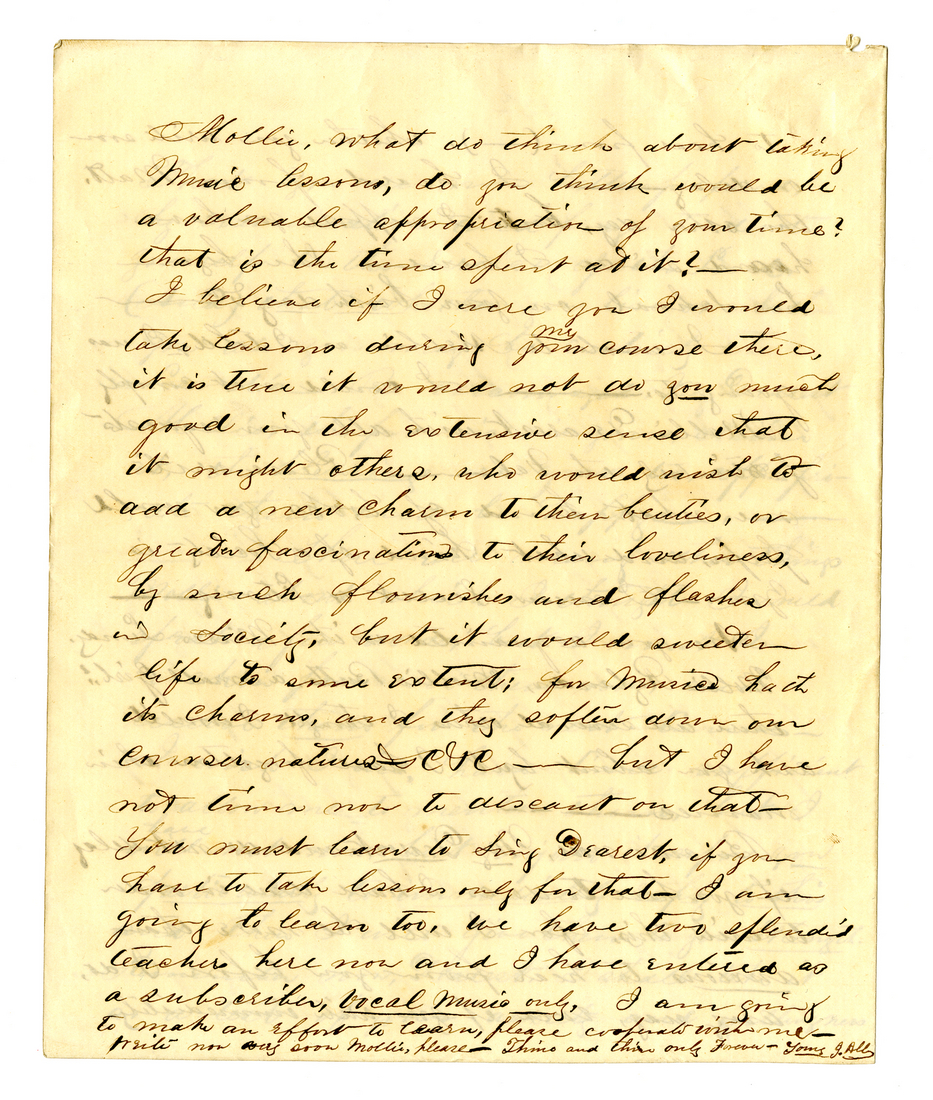 Mollie, what do think about taking
Music lessons, do you think would be
a valuable appropriation of your time?
that is the time spent at it?—
I believe if I were you I would
take lessons during your course there,
it is true it would not do you much
good in the extensive sense that
it might others, who would wish to
add a new charm to their beuties, or
greater fascinations to their loveliness,
by such flourishes and flashes
in Society, but it would sweeten
life to some extent; for Music hath
its charms, and they soften down our
courser natures &C — but I have
not time now to descant on that—
You must learn to Sing Dearest, if you
have to take lessons only for that— I am
going to learn too, we have two splendid
teachers here now and I have entered as
a subscriber, Vocal Music only, I am going
to make an effort to learn, please cooperate with me—
write now soon Mollie, please— Thine and thine only Forever— Yours J.